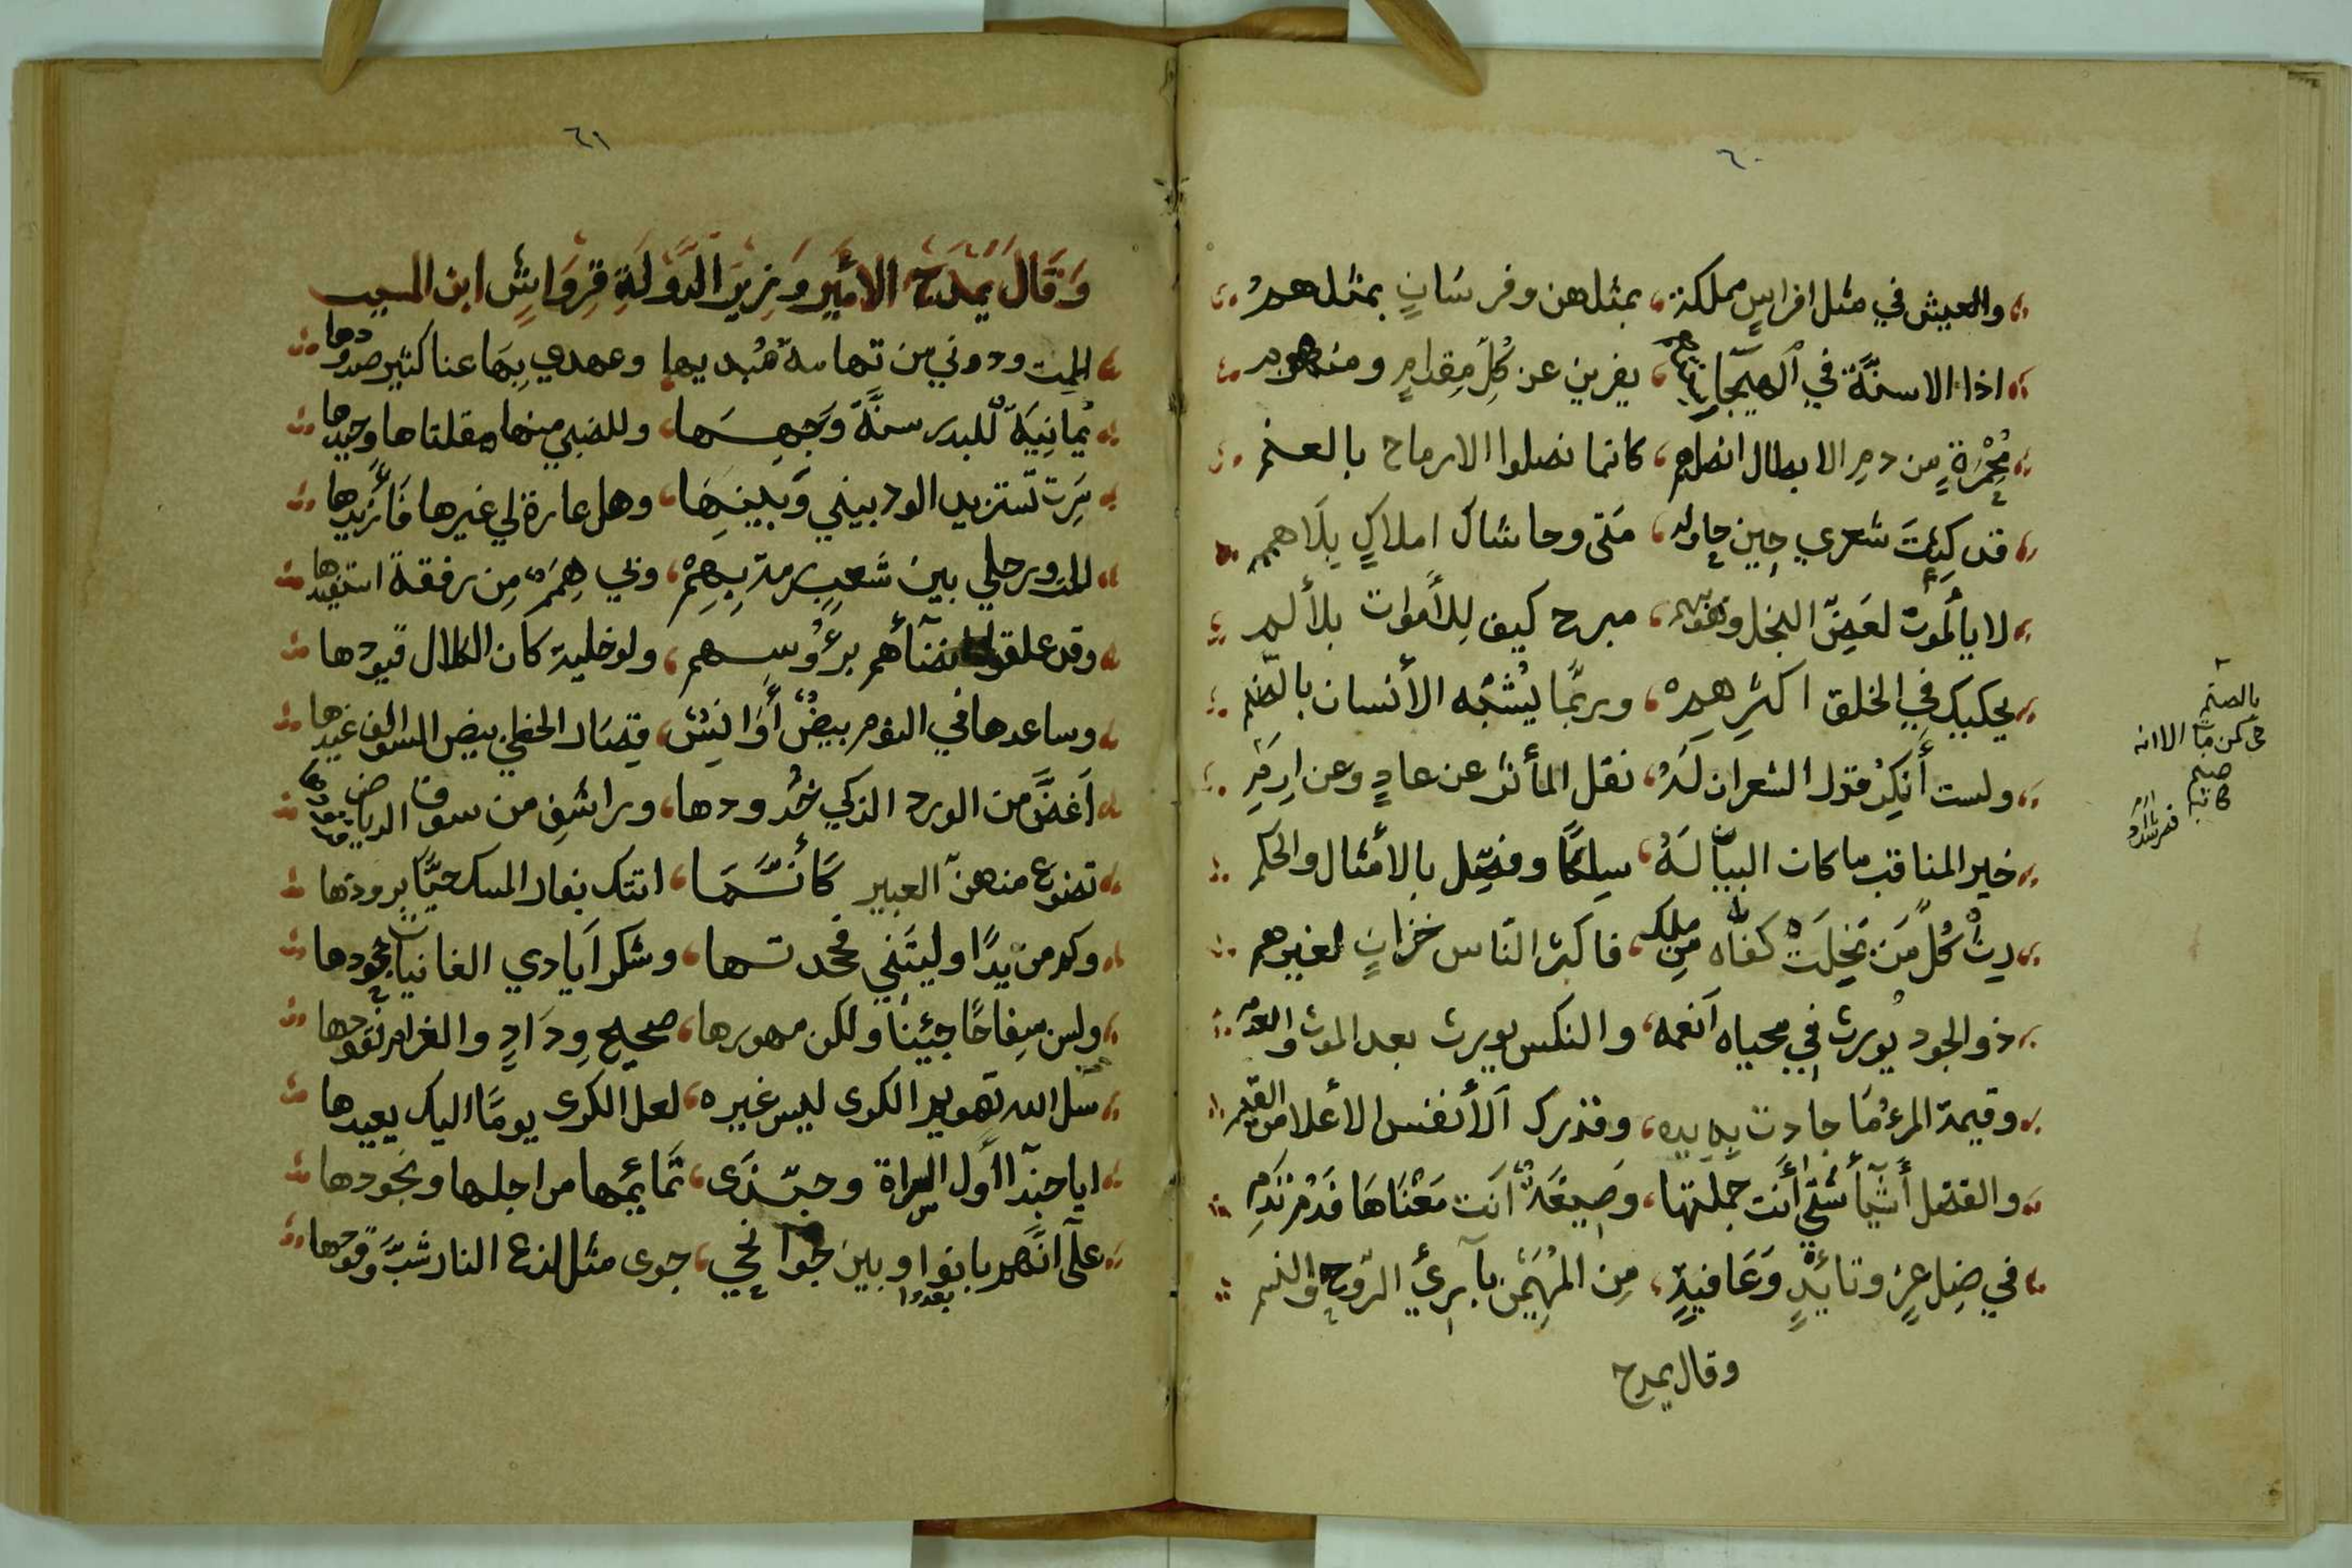 ٦٠
والعيش في مثل افراسٍ مملكة، بمثلهن وفرسانٍ بمثلهمُ
اذا الاسنّة في الهيجآء، يفرين عن كُلِّ مِقدامٍ ومنهم
مُحْمَّرةٍ مِن دمِ الابطال انصلهم، كانما نصلوا الارماح بالعنم
قد كَبُتَ شعري حِين حاوله، مَتى وحاشاك املاكٍ بِلَاهمم
لا يألموُن لعَضّ البخل، مبرح كيف لِلأموات بلألم
يحكيك في الخلق اكثرِهمُ، وربَّما يُشْبُه الأنسان بالصنم
ولست أُنكِرُ قول الشعران لَهُ، نقل المأثر عن عادٍ وعن ارِمَ
خير المناقب ما كان البيان لَهُ، سِلِكًا وفصّل بالأمثال والحكم
رِثْ كُلَّ مَن بَخِلَتْ كفاه مِن مَلِكٍ، فاكثر النّاس خزانٍ لغيرهم
ذو الجود يُورث في محياه اَنعمه، والنكس يورث بعد الموت والعدم
وقيمة المرءُ مَا جادت بِه يده، وقدرك الأنفس الأعلا من القيم
والفضل أشيآ شتّي أَنت جملتها، وَصِيغَةٌ اَنت مَعْنَاهَا فَدُمْ تَدُمِ
في ضِل عِزٍ وتائدٍ وَعَافيةٍ، مِن المُهَيْمِن بآرئ الرّوح والنسم
وقال يمدح
بالصنم
الا انه
صنم
٦١
وَقَالَ يَمْدَحُ الامَيْرِ وَزِينَ الدَّوْلَةِ قِرْوَاشٍ ابن المسيب
المت ودوني من تهامة بيدها وعهدي بِهَا عنا كثير صدودها
يمانِيَة للبدر سنَّةَ وَجهِهَا، وللضبي منها مقلتاها وجيدها
سَرَت تستزيد الود بيني وَبينِهَا، وهل عارة لي غيرها فَأزيدها
المت ورحلي بين شعبٍ رمت بِهِمْ، وبي هِمَمٌ مِن رفقة استفيدها
وقد علقوا انضآأهم برءُوسهم، ولو خليت كان الكلال قيودها
وساعدها في النوم بيضُ أَوانِسُ، قِصَار الخطى بيض السوالف غيدها
اَغضّ من الورد الذكي خُدودها، وراشف من سوف الرياض
تضوع منهن العبير كَأنَّما، اتتك بفار المسك حيًّا برودها
وكم من يدًا وليتَنِي فجحدتها، وشكر اَيادي الغانيات جحودها
وليس سِفاحًا جِئينا ولكن مهورها، صحيح وِدَادٍ والغرام نقودها
سل الله تهويم الكرى ليس غيره، لعل الكرى يومًا اليك يعيدها
ايا حبذآ اوّل السراة وحبّذَى، تَمائِمها من اجلها ونجودها
علآ انَّهم بانوا وبين جَوانحي، جوى مثل لذع النار شبَّ وقودها
بعدوا